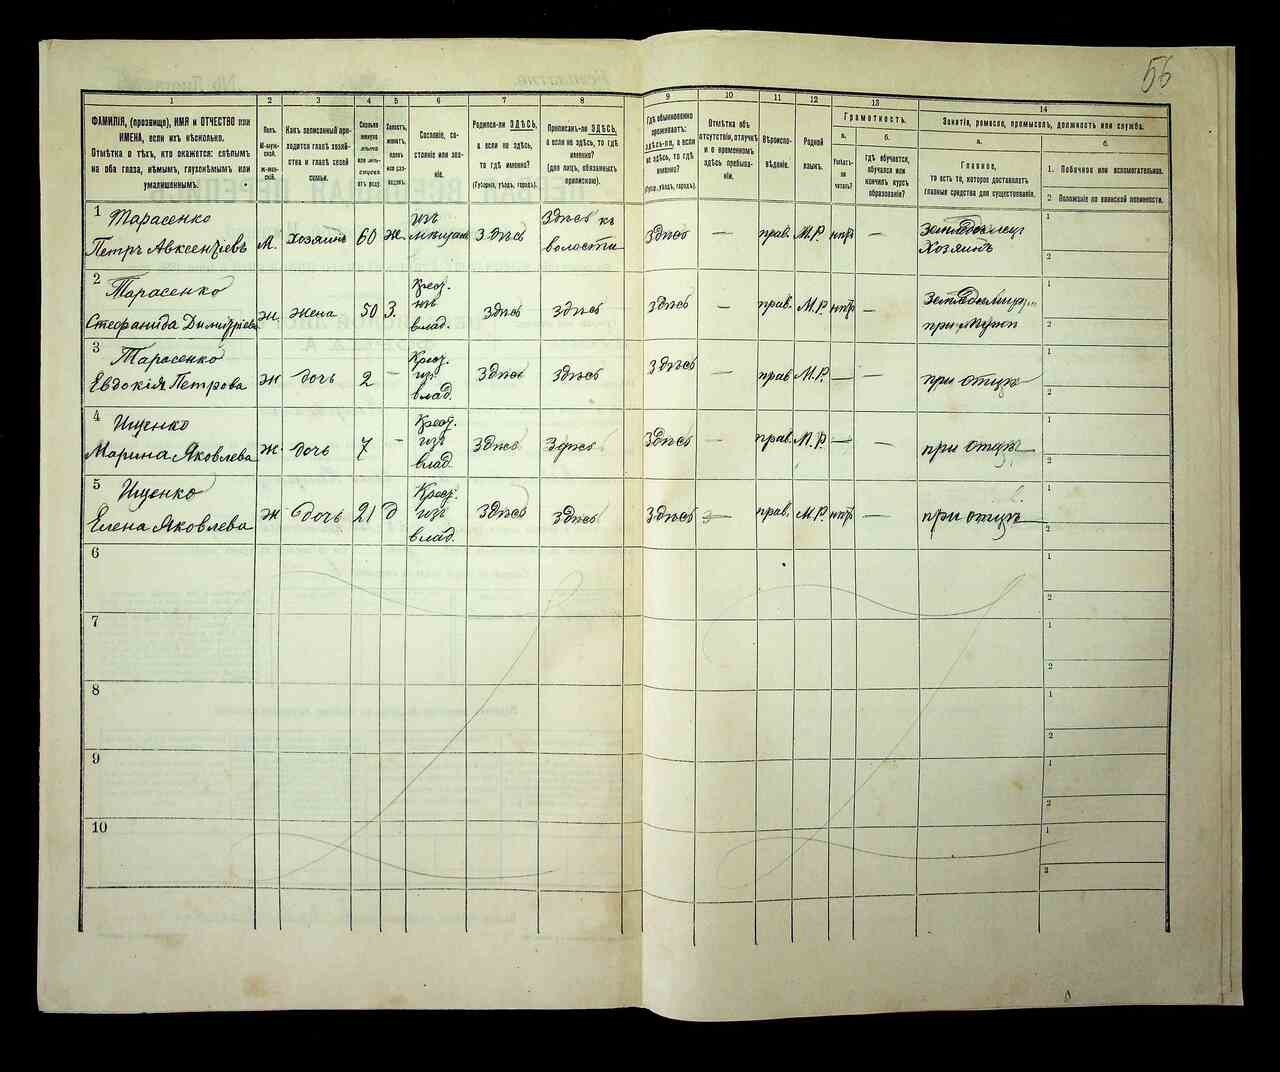 56
1 2 3 4 5 6 7 8 9 10 11 12 13 14
ФАМИЛІЯ, (прозвище), ИМЯ и ОТЧЕСТВО или
ИМЕНА, если ихъ нѣсколько.
Отмѣтка о тѣхъ, кто окажется: слѣпымъ
на оба глаза, нѣмымъ, глухонѣмымъ или
умалишеннымъ.
Полъ.
М-муж-
ской.
Ж-жен-
скій.
Какъ записанный при-
ходится главѣ хозяй-
ства и главѣ своей
семьи.
Сколько
минуло
лѣтъ
или мѣ-
сяцевъ
отъ роду.
Холостъ,
женатъ,
вдовъ
или раз-
веденъ.
Сословіе, со-
стояніе или зва-
ніе.
Родился-ли ЗДѢСЬ,
а если не здѣсь,
то гдѣ именно?
(Губернія, уѣздъ, городъ).
Приписанъ-ли ЗДѢСЬ,
а если не здѣсь, то гдѣ
именно?
(для лицъ, обязанныхъ
припискою).
Гдѣ обыкновенно
проживаетъ:
здѣсь-ли, а если
не здѣсь, то гдѣ
именно?
(Губер., уѣздъ, городъ).
Отмѣтка объ
отсутствіи, отлучкѣ
и о временномъ
здѣсь пребыва-
ніи.
Вѣроиспо-
вѣданіе.
Родной
языкъ.
Грамотность.
а.
Умѣетъ-
ли
читать?
б.
гдѣ обучается,
обучался или
кончилъ курсъ
образованія?
Занятіе, ремесло, промыселъ, должность или служба.
а.
Главное,
то есть то, которое доставляетъ
главныя средства для существованія.
б.
1. Побочное или вспомогательное.
2 Положеніе по воинской повинности.
1 Тарасенко
Петръ Авксентіевъ М. Хозяинъ 60 ж. изъ мѣщанъ Здѣсь Здѣсь къ волости Здѣсь — прав. М.Р. —
Хозяинъ
1
2
2 Тарасенко
Стефанида Димитріева ж жена 50 З. Крест. изъ влад. Здѣсь Здѣсь Здѣсь — прав. М.Р. —
1
2
3 Тарасенко
Евдокія Петрова ж дочь 2 – Крест. изъ влад. Здѣсь Здѣсь Здѣсь — прав М.Р. — — при отцѣ
1
2
4 Ищенко
Марина Яковлева ж. дочь 7 – Крест. изъ влад. Здѣсь Здѣсь Здѣсь — прав. М.Р — — при отцѣ
1
2
5 Ищенко
Елена Яковлева ж дочь 21 д Крест. изъ влад. Здѣсь Здѣсь Здѣсь — прав. М.Р. — при отцѣ
1
2
6
1
2
7
1
2
8
1
2
9
1
2
10
1
2